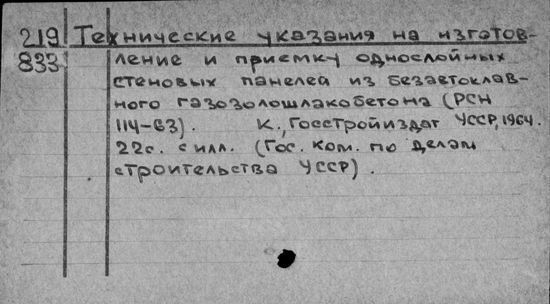 219 Технические указания на изготов-
833 ление и приемку однослойных
стеновых панелей из безавтоклав-
ного газозолошлакобетона (РСН
114-63). К., Госстройиздат УССР, 1964.
22с. с илл. (Гос. ком. по делам
строительства УССР).